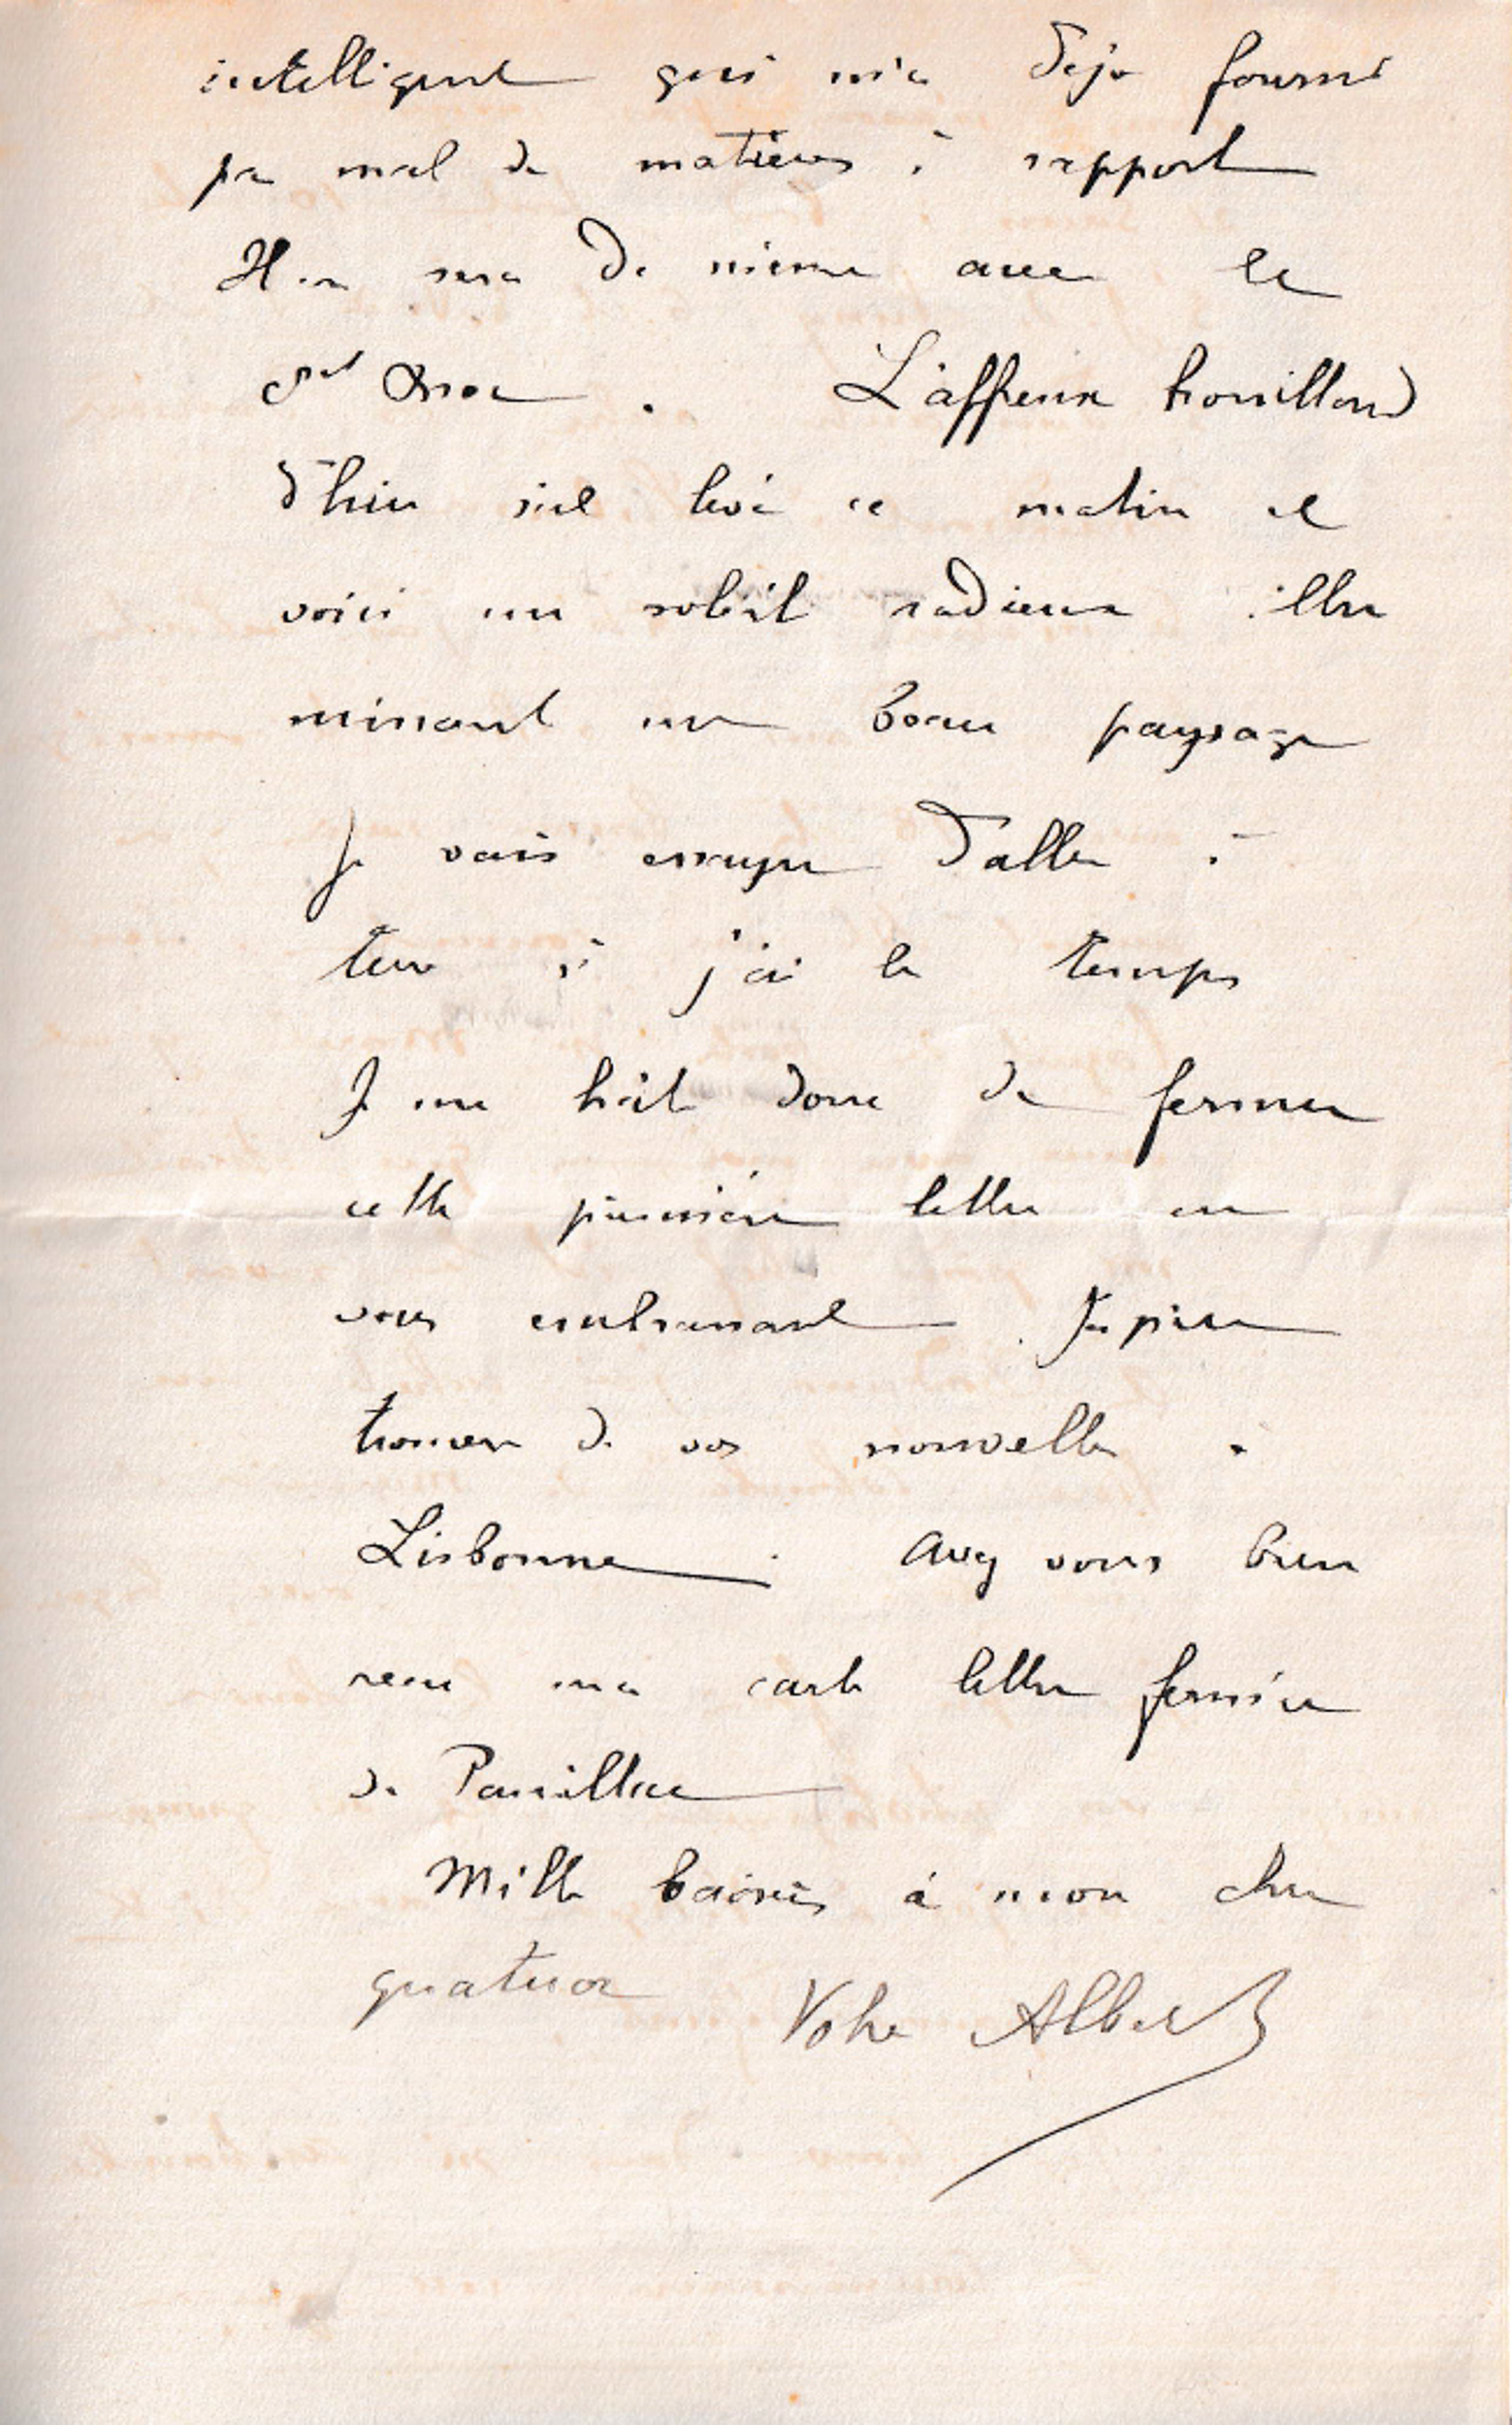 intelligent qui m'a déjà fourni
pas mal de matières à rapport
Il en sera de même avec le
L'affreux brouillard
d'hier s'est levé ce matin et
voici un soleil radieux illu
minant un beau paysage
Je vais essayer d'aller à
terre si j'ai le temps
Je me hâte donc de fermer
cette première lettre en
vous embrassant. J'espère
trouver de vos nouvelles à
Lisbonne. Avez vous bien
recu ma carte lettre fermée
de Pauillac
Mille baisers à mon cher
quatuor Votre Albert